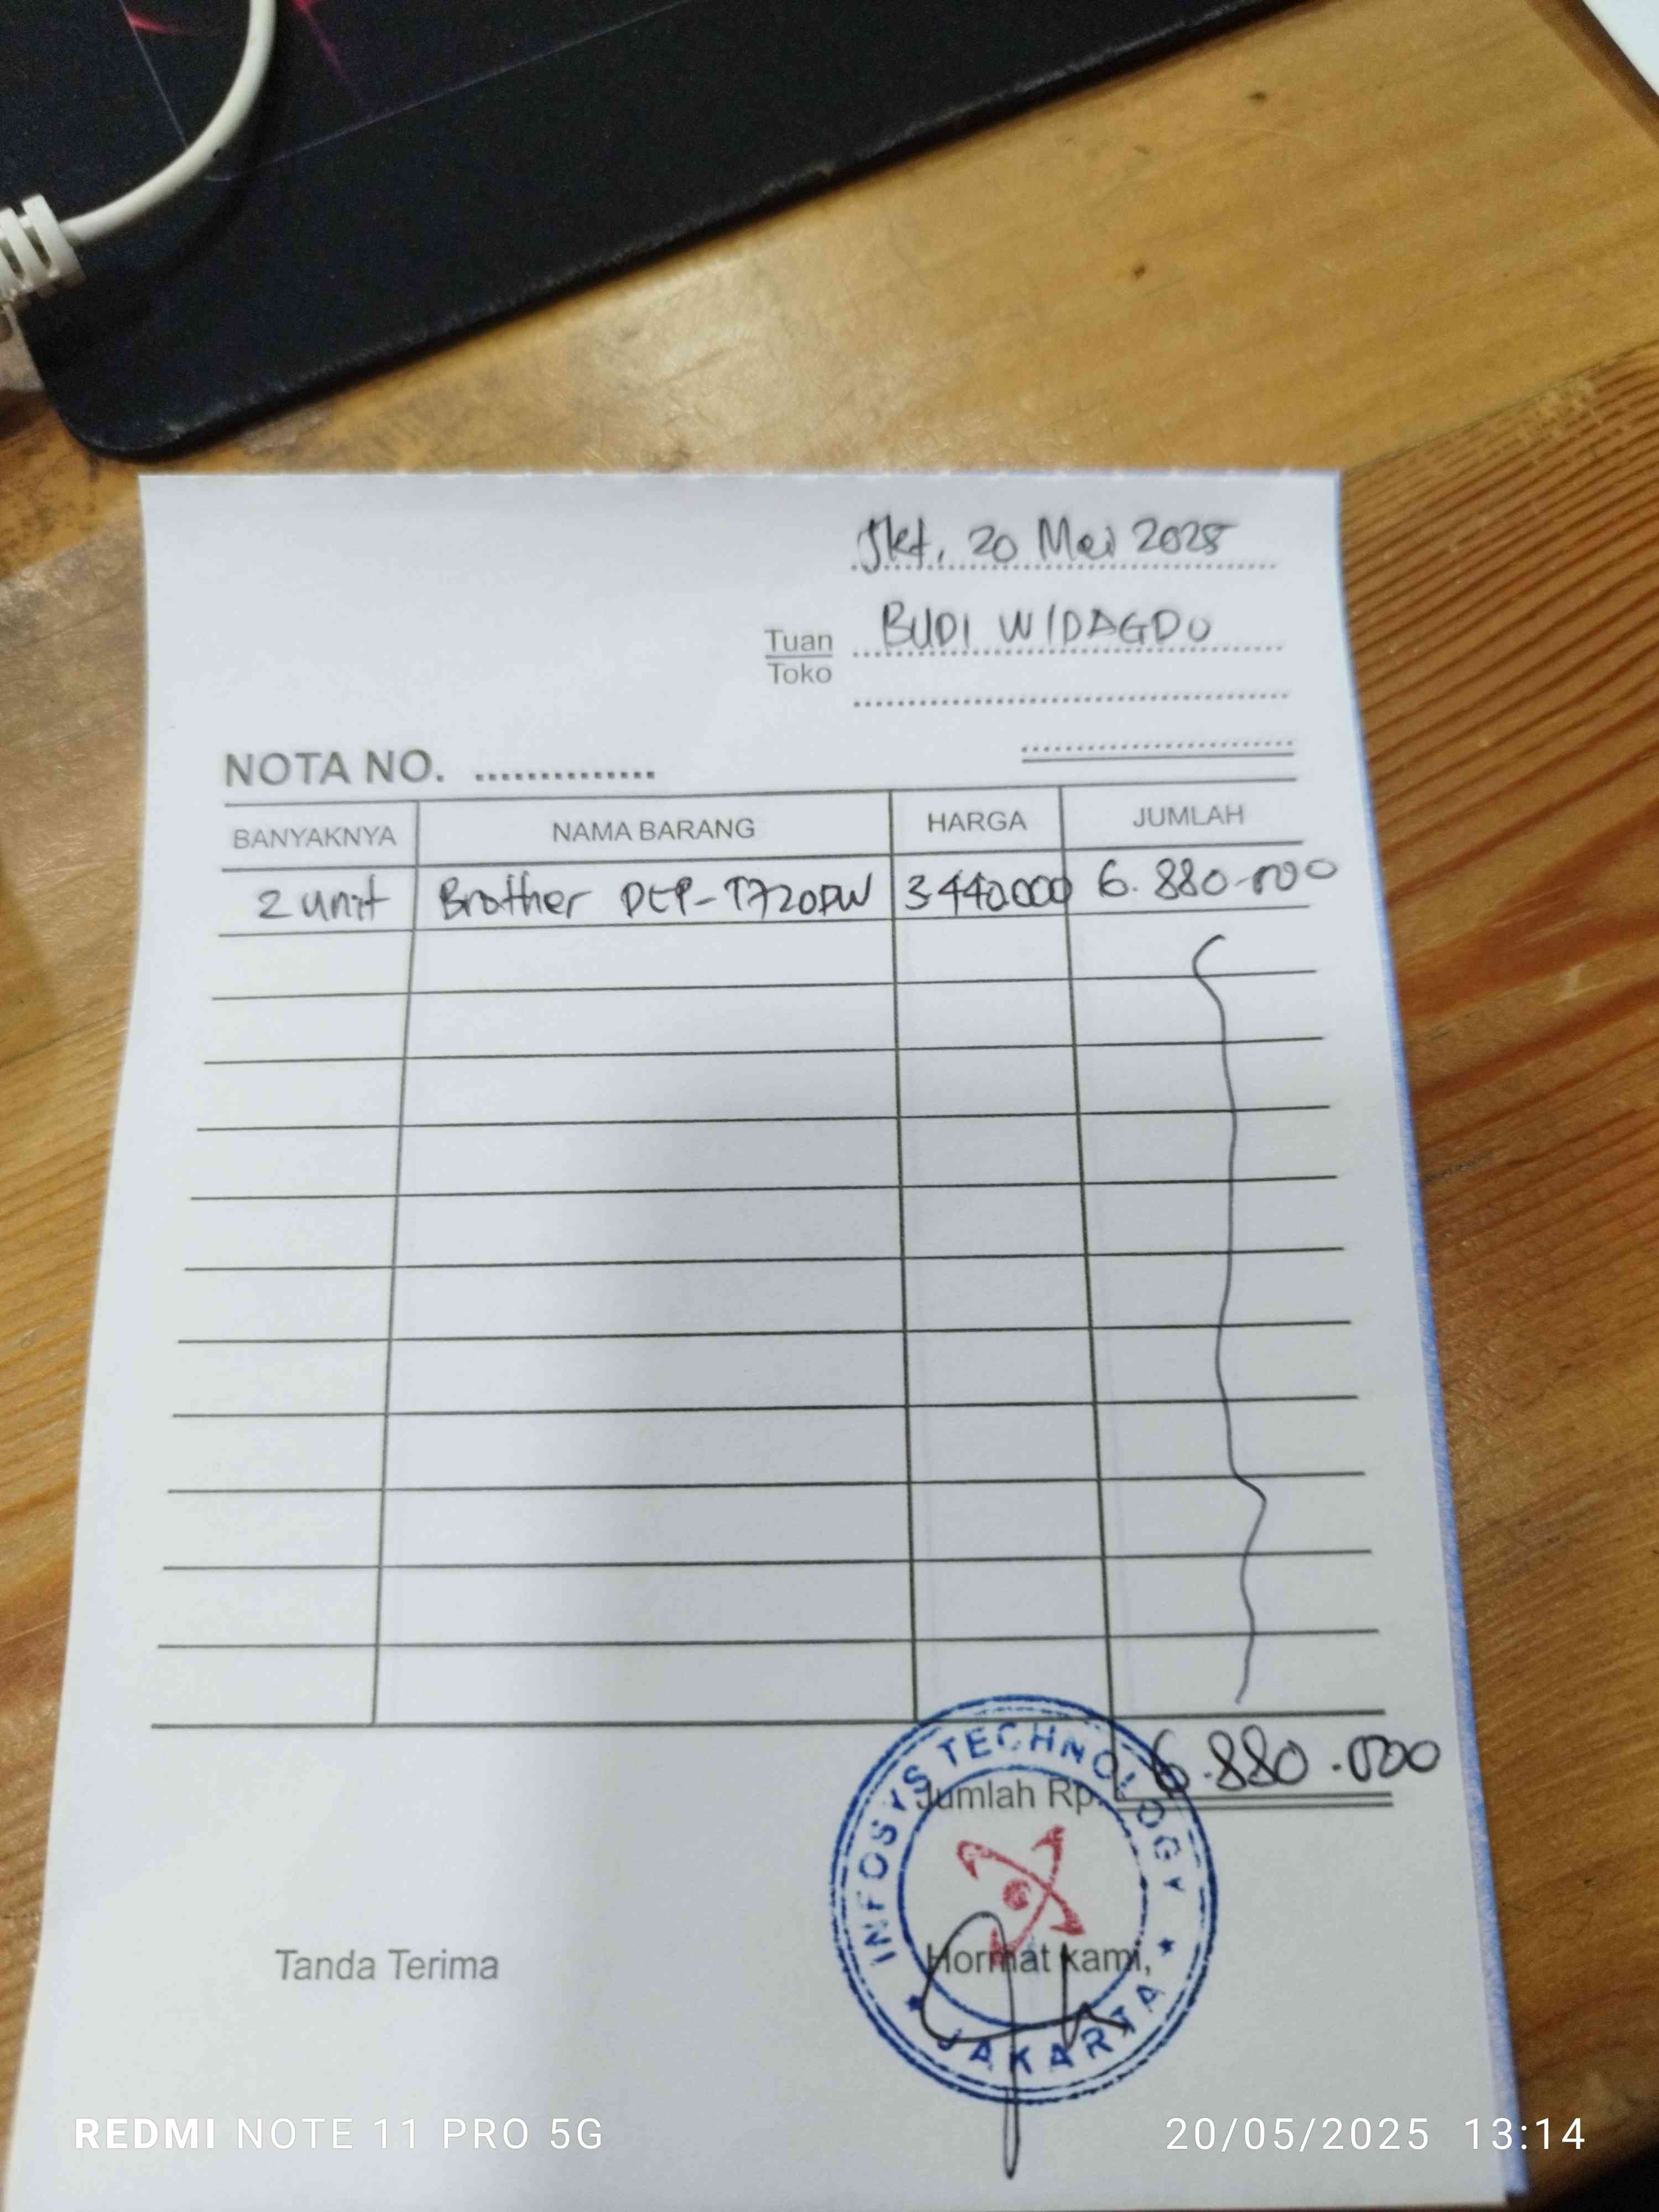 Jkt, 20 Mei 2025
Tuan BUDI WIDAGDO
Toko
NOTA NO. ..............
BANYAKNYA NAMA BARANG HARGA JUMLAH
2 unit Brother DCP-T720DW 3.440.000 6.880.000
Jumlah Rp. 6.880.000
Tanda Terima Hormat kami,
INFOSYS TECHNOLOGY
JAKARTA
REDMI NOTE 11 PRO 5G 20/05/2025 13:14